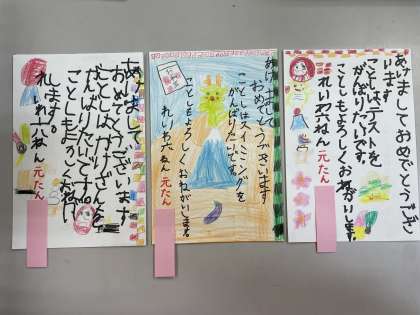 あけましておめでとうござ
います
ことしは、テストを
がんばりたいです。
ことしもよろしくおねがいします。
れいわ六ねん 元たん
あけまして
おめでとうございます
ことしはスイミングを
がんばりたいです。
ことしもよろしくおねがいします。
れいわ六ねん 元たん
あけまして
おめでとうございます
ことしはかけざんを
がんばりたいです。
ことしもよろしくおねがい
します。
れいわ六ねん 元たん